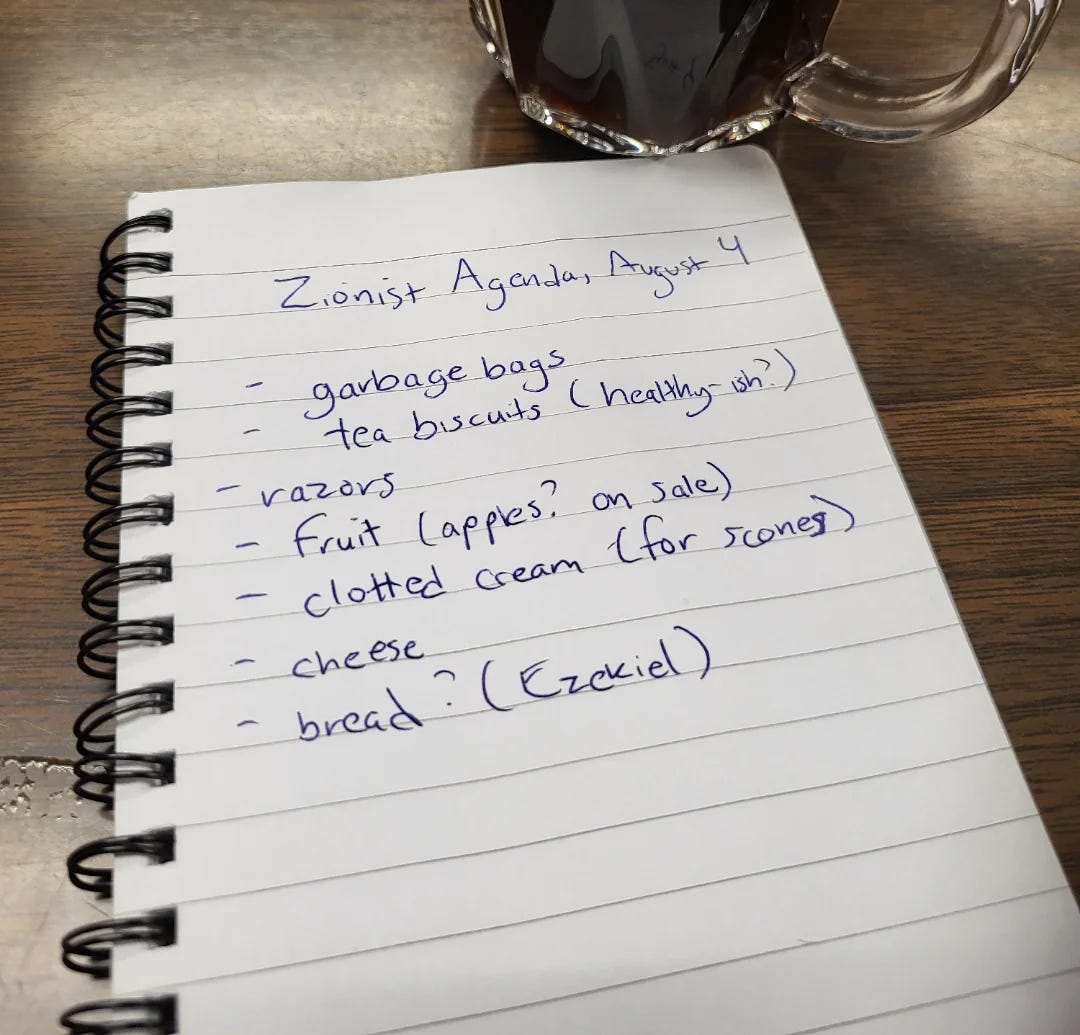 Zionist Agenda, August 4
- garbage bags
- tea biscuits (healthy-ish?)
- razors
- fruit (apples? on sale)
- clotted cream (for scones)
- cheese
- bread? (Ezekiel)